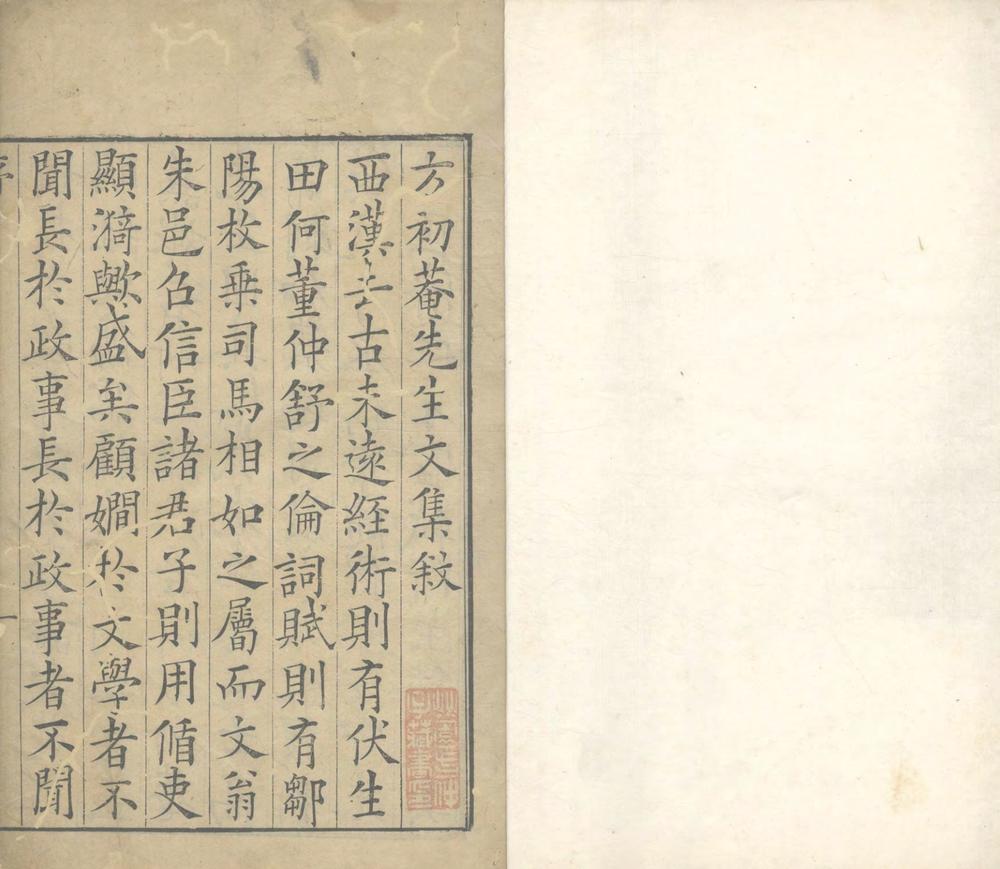 方初菴先生文集敘
西漢去古未遠經術則有伏生
田何董仲舒之倫詞賦則有鄒
陽枚乗司馬相如之屬而文翁
朱邑召信臣諸君子則用循吏
顯漪歟盛矣顧嫻於文學者不
聞長於政事長於政事者不聞